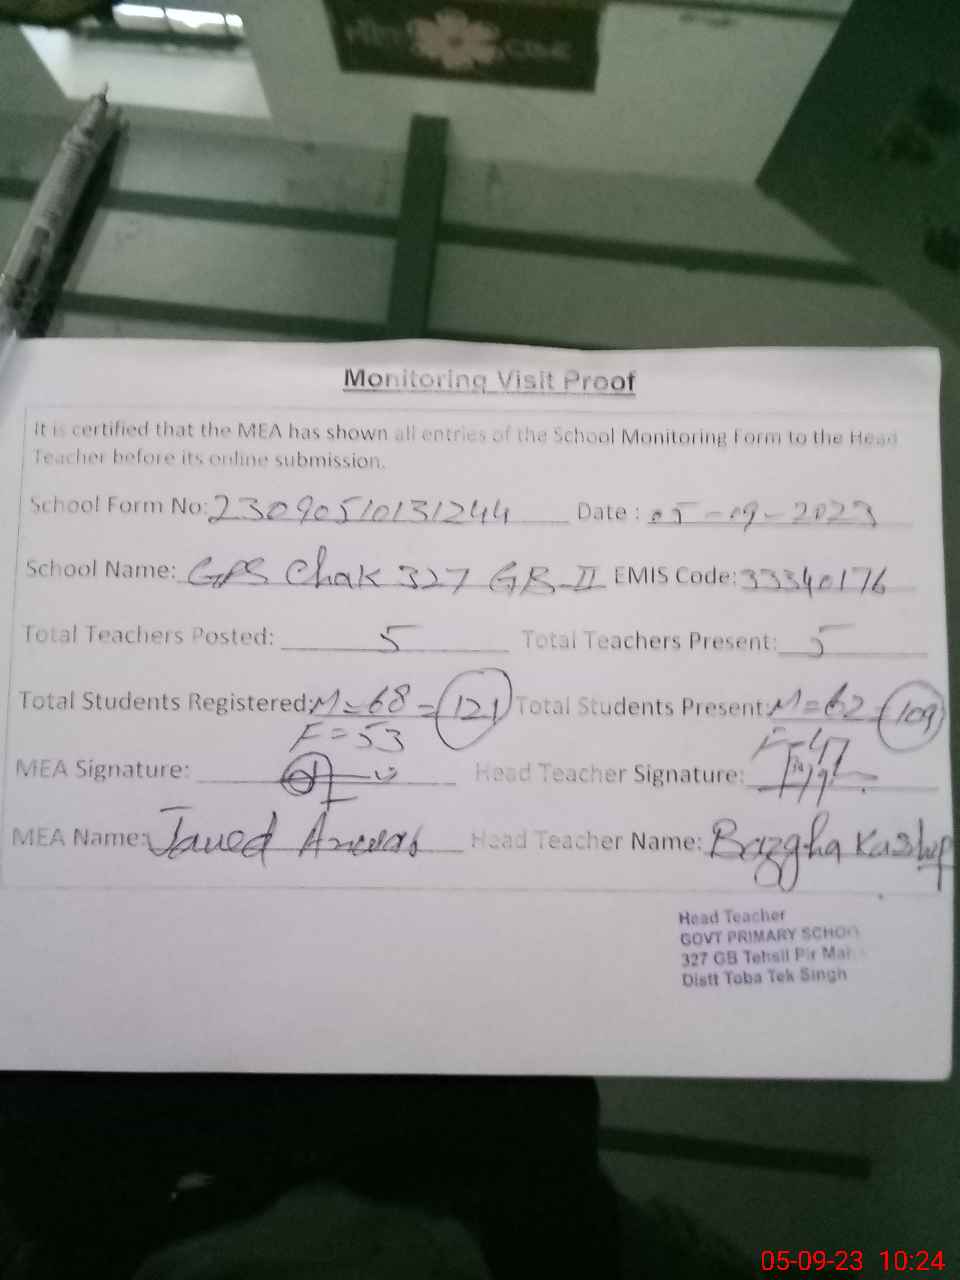 Monitoring Visit Proof
It is certified that the MEA has shown all entries of the School Monitoring Form to the Head
Teacher before its online submission.
School Form No: 23090510131244 Date : 05-09-2023
School Name: GPS Chak 327 GB-II EMIS Code: 33340176
Total Teachers Posted: 5 Total Teachers Present: 5
Total Students Registered: M=68 = 121 Total Students Present: M=62 109
F=53 F=47
MEA Signature: Head Teacher Signature:
MEA Name: Javed Anwar Head Teacher Name: Bazgha
Head Teacher
GOVT PRIMARY SCHOO
327 GB Tehsil Pir Mah
Distt Toba Tek Singh
05-09-23 10:24